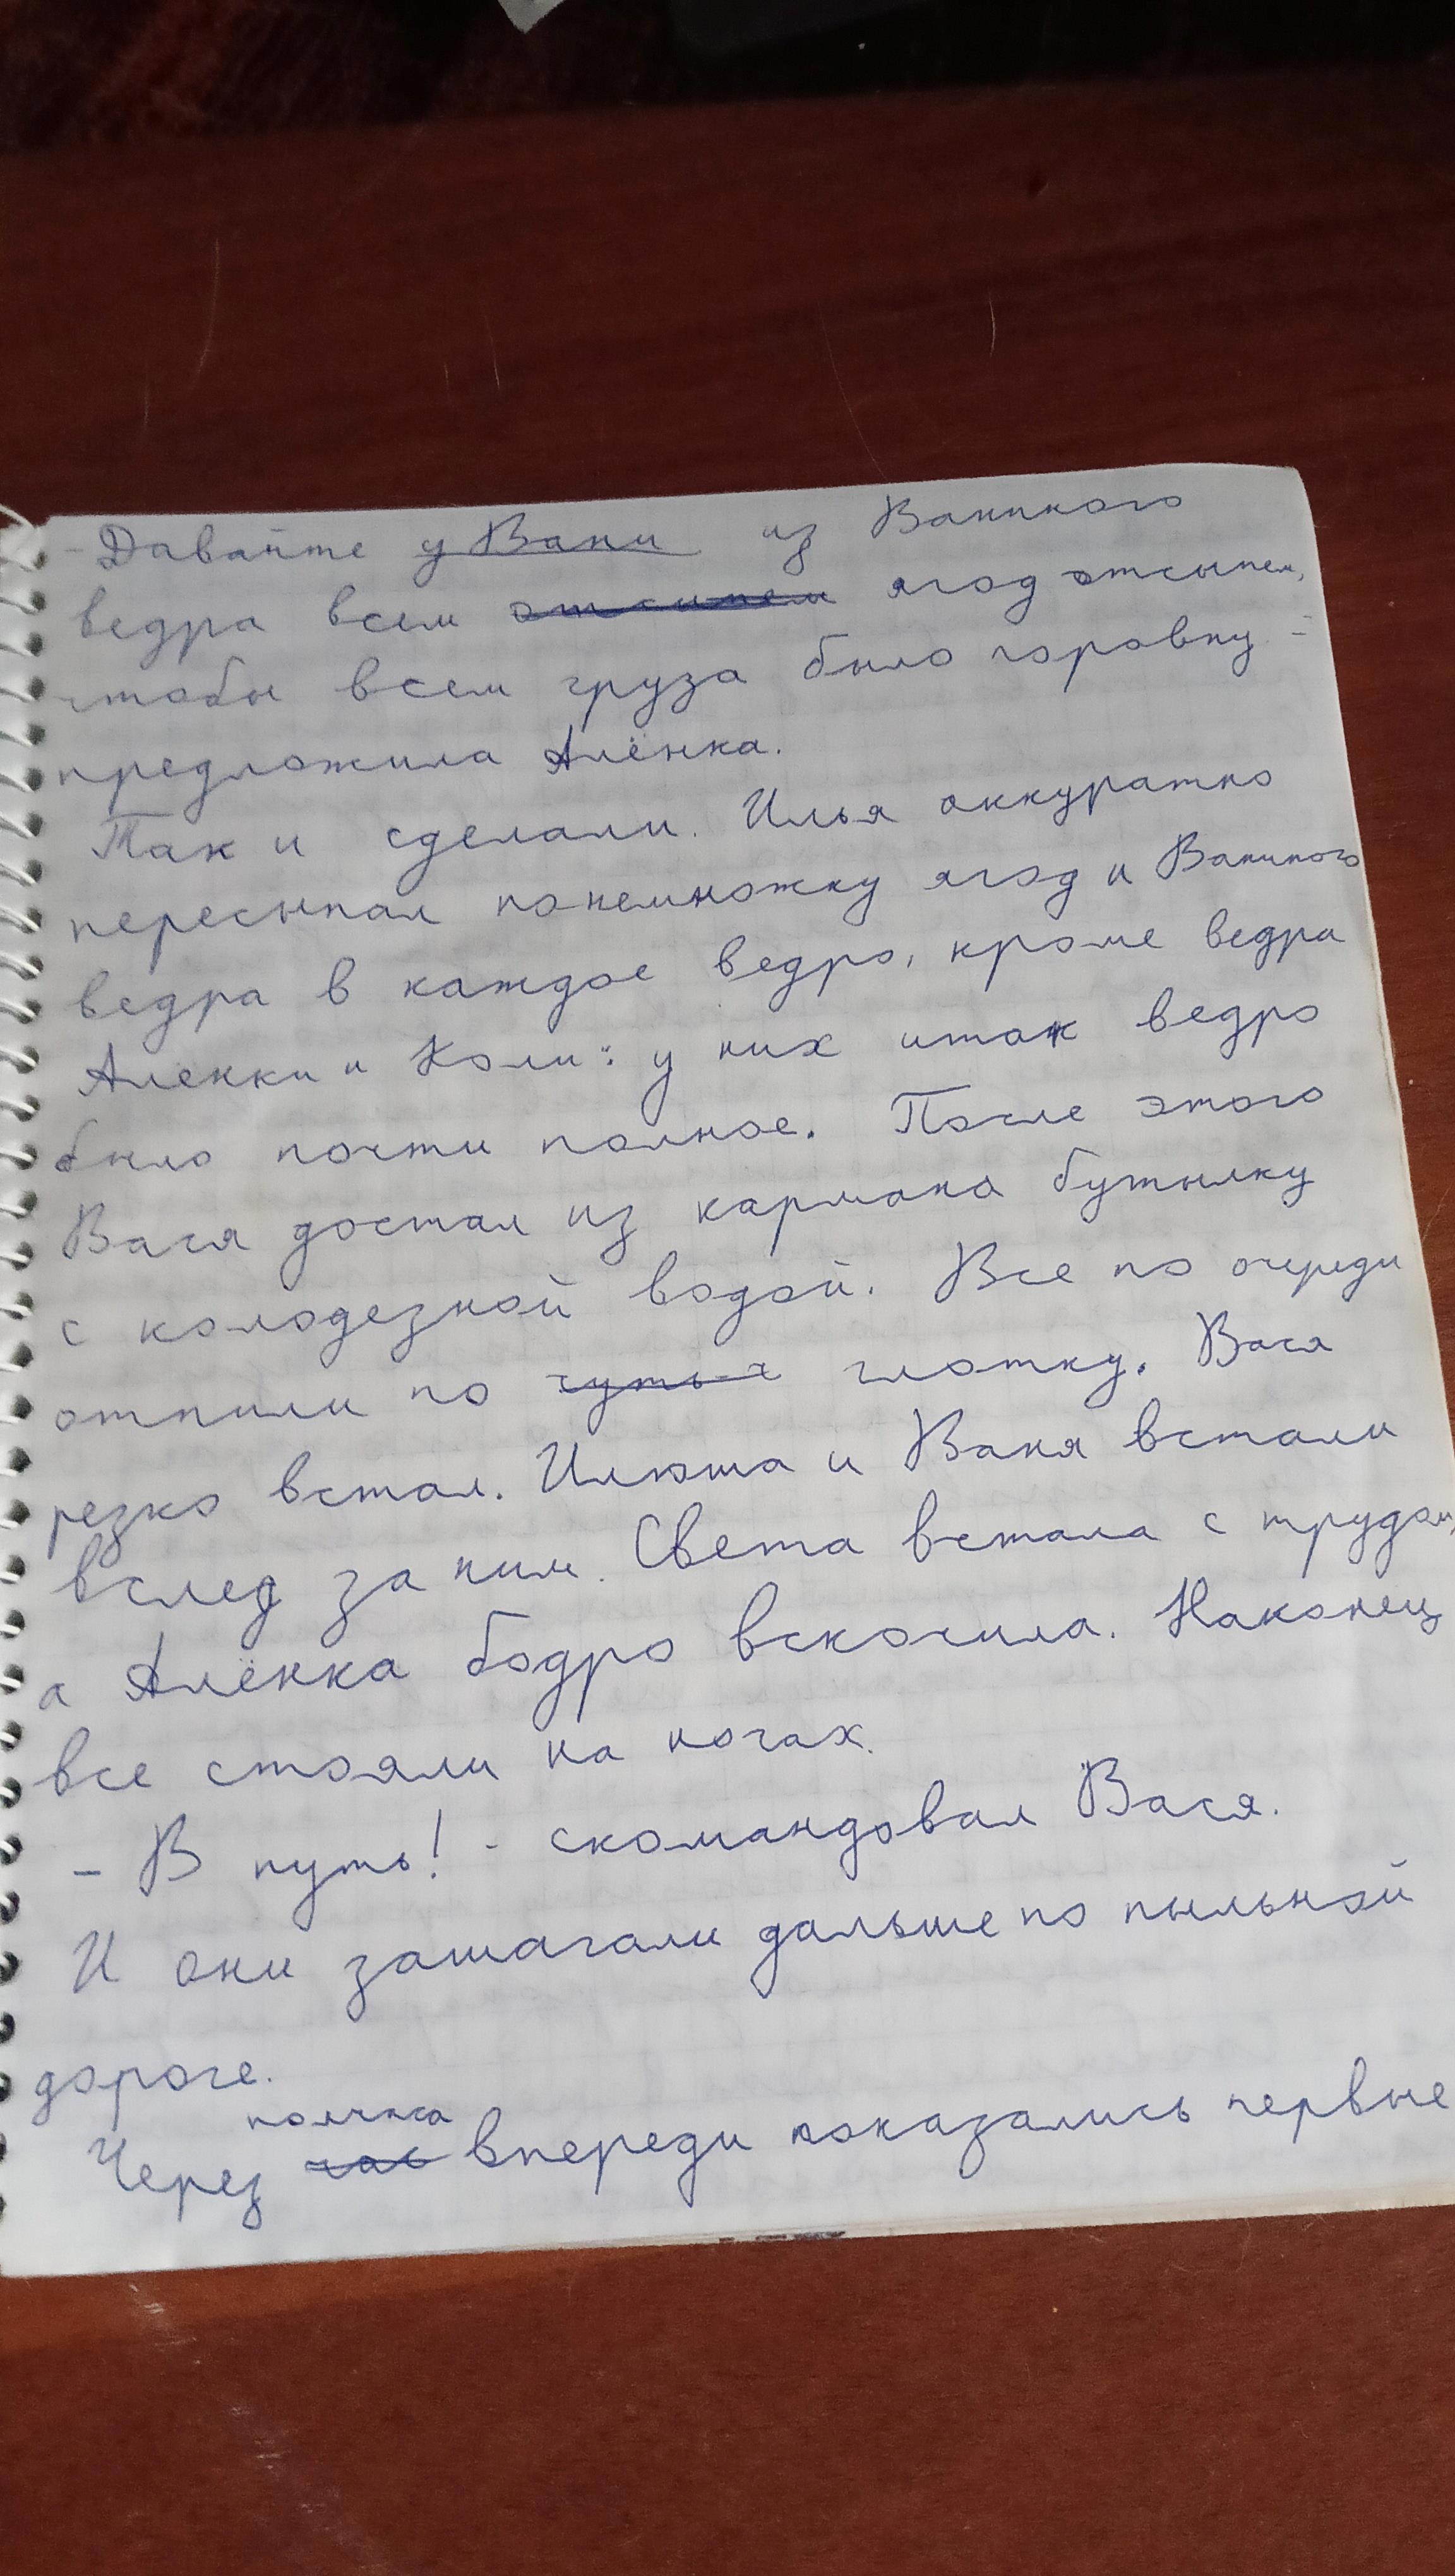 - Давайте у Вани из Ваниного
ведра всем отсыпем ягод отсыпем,
чтобы всем груза было поровну -
предложила Алёнка.
Так и сделали. Илья аккуратно
пересыпал понемножку ягод и Ваниного
ведра в каждое ведро, кроме ведра
Аленки и Коли: у них итак ведро
было почти полное. После этого
Вася достал из кармана бутылку
с колодезной водой. Все по очереди
отпили по чуть-ч глотку. Вася
резко встал. Илюша и Ваня встали
вслед за ним. Света встала с трудом,
а Алёнка бодро вскочила. Наконец
все стояли на ногах.
- В путь! - скомандовал Вася.
И они зашагали дальше по пыльной
дороге.
полчаса
Через час впереди показались первые